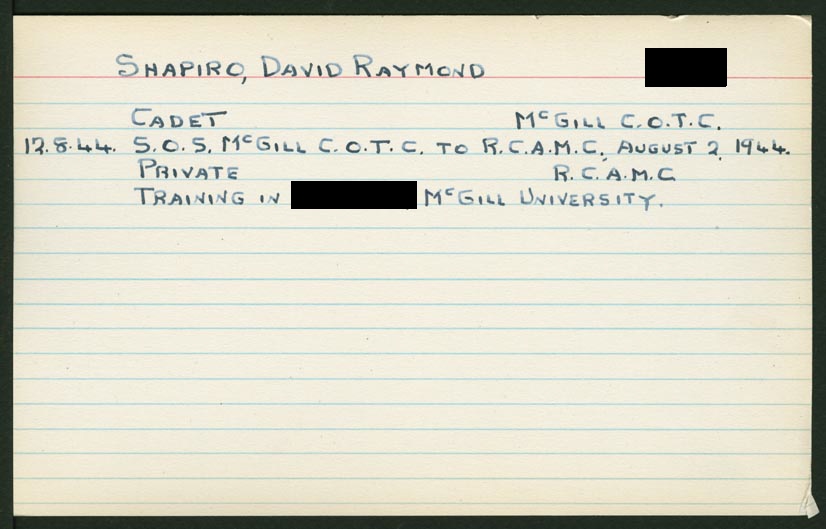 SHAPIRO, DAVID RAYMOND
CADET McGILL C.O.T.C.
12.8.44. S.O.S. McGILL C.O.T.C. TO R.C.A.M.C. AUGUST 2, 1944.
PRIVATE R.C.A.M.C
TRAINING IN McGILL UNIVERSITY.